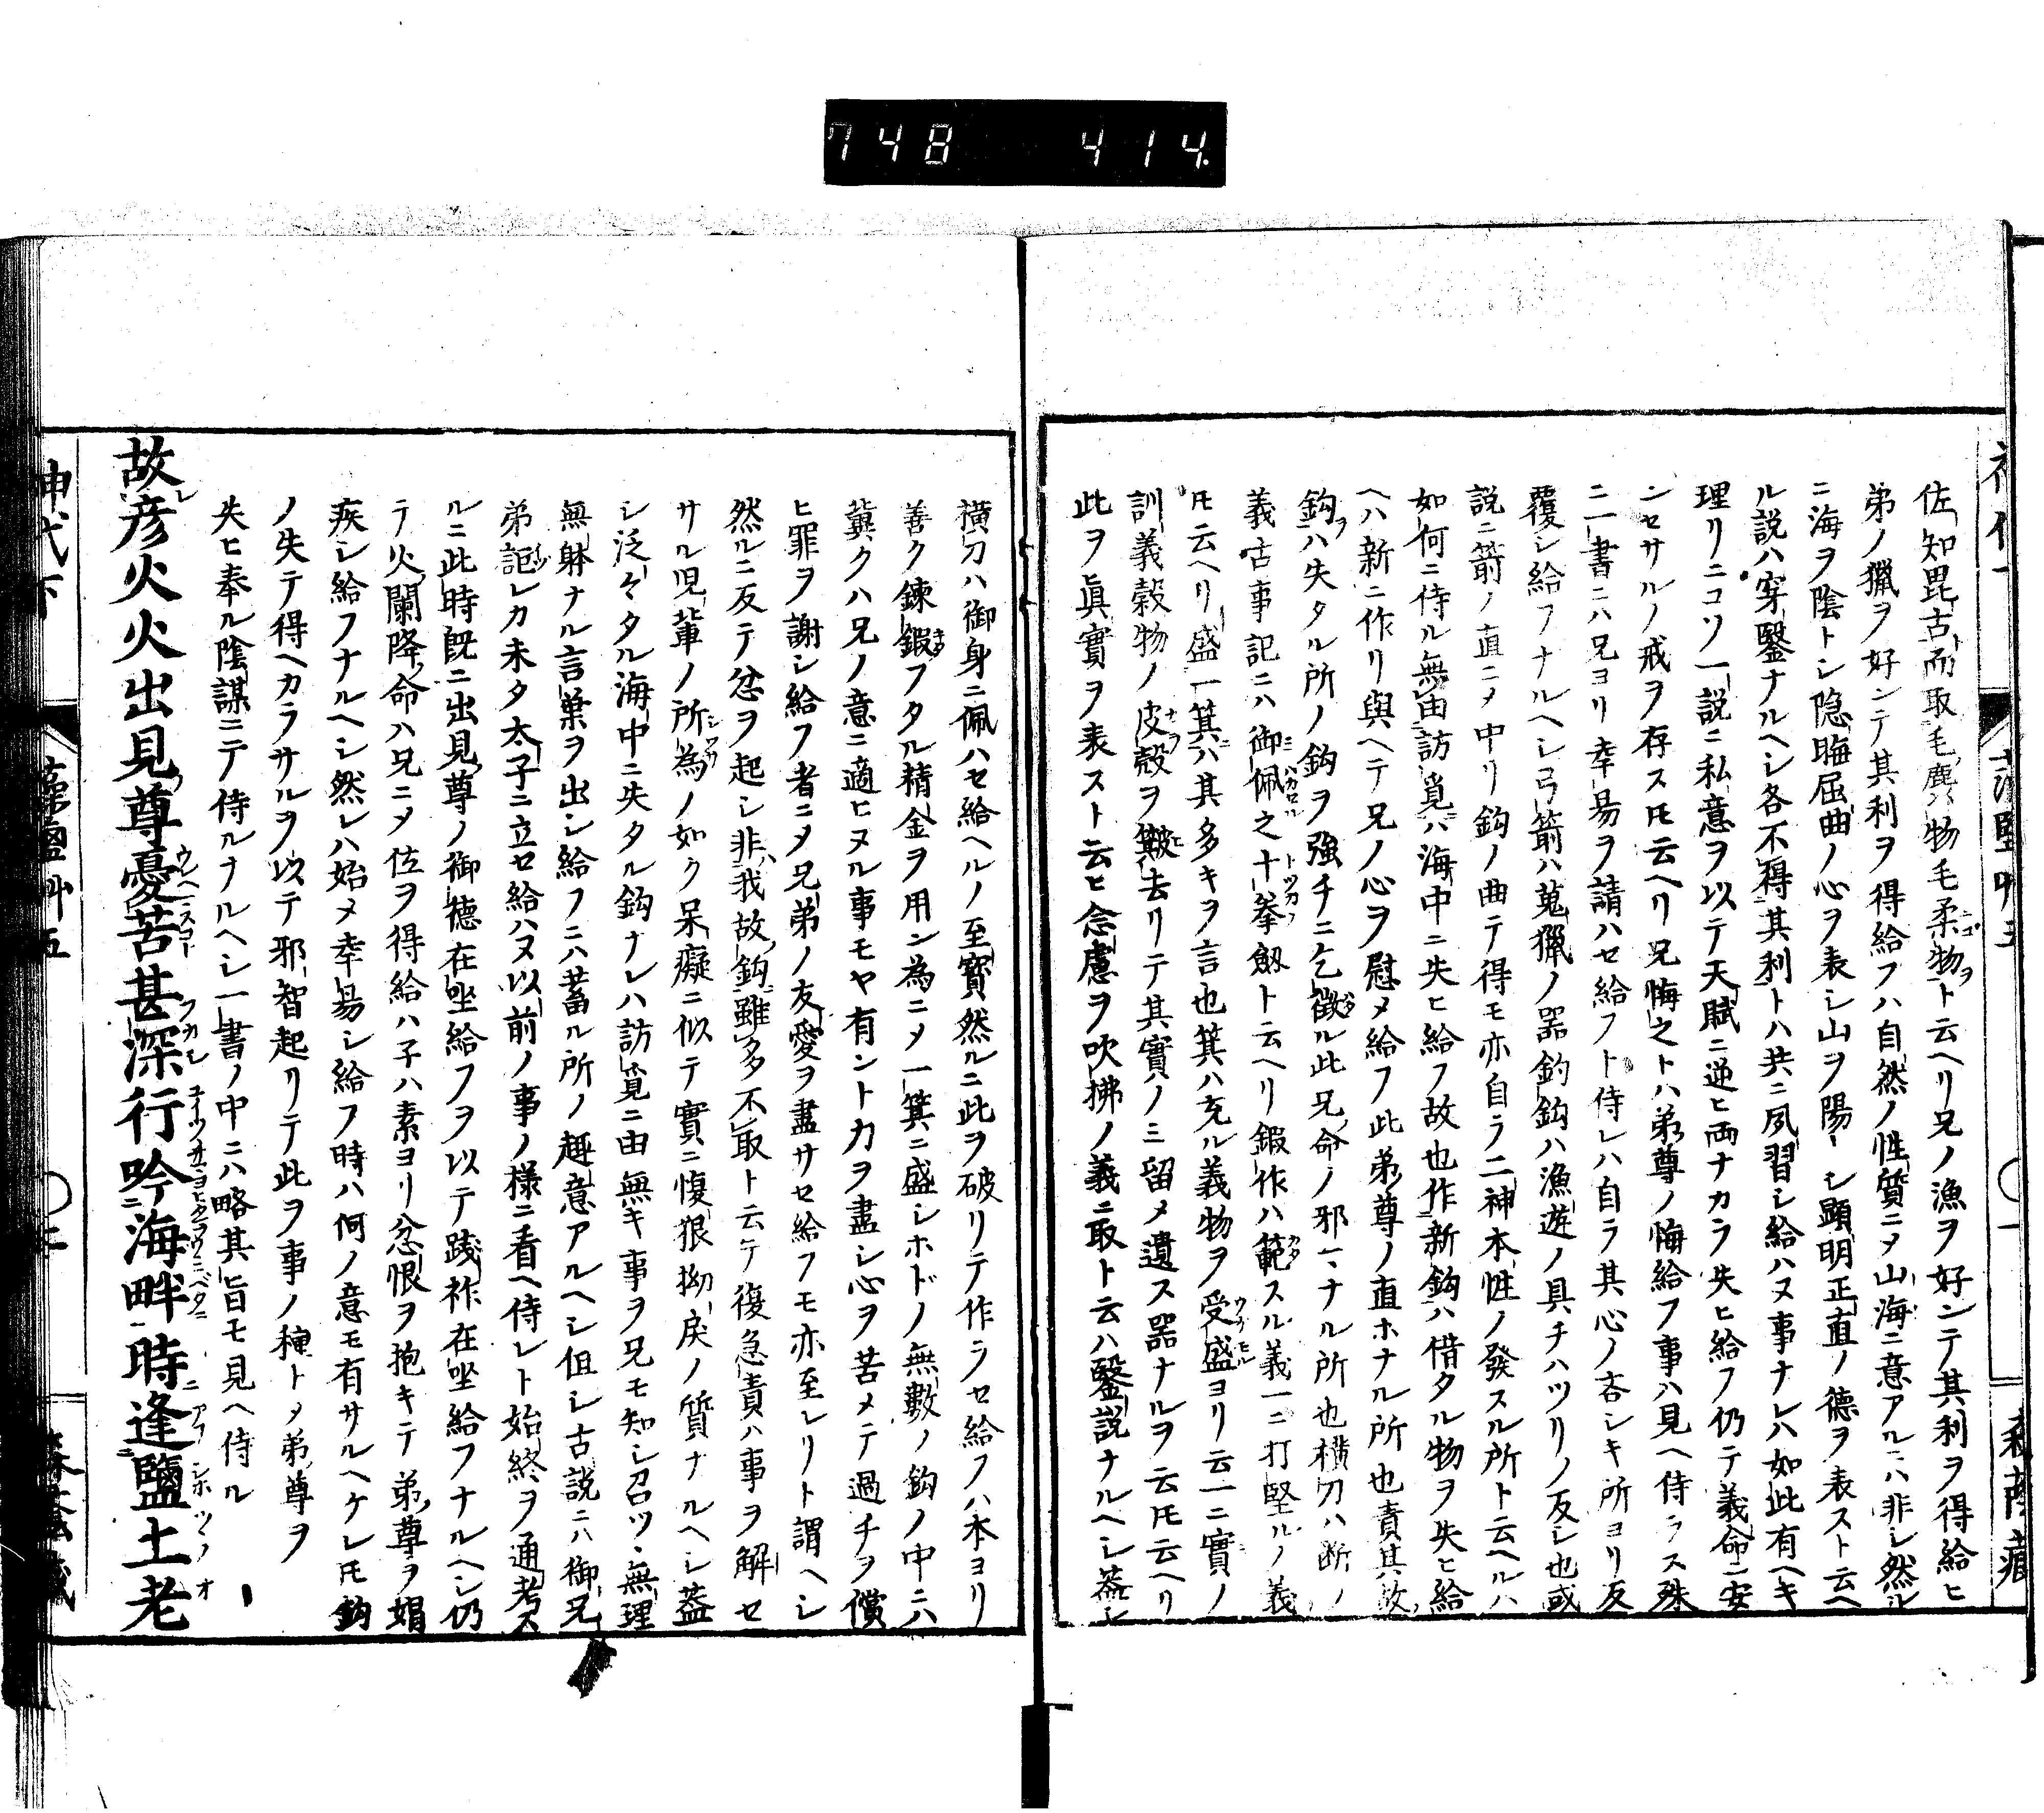 748 414
佐知毘古而取毛麁物毛柔物ヲト云ヘリ兄ノ漁ヲ好ンテ其利ヲ得給ヒ
弟ノ獵ヲ好ンテ其利ヲ得給フハ自然ノ性質ニメ山海ニ意アルニハ非シ然ル
ニ海ヲ陰トシ隠晦屈曲ノ心ヲ表シ山ヲ陽トシ顕明正直ノ德ヲ表スト云ヘ
ル説ハ穿鑿ナルヘシ各不得其利トハ共ニ夙習シ給ハヌ事ナレハ如此有ヘキ
理リニコソ一説ニ私意ヲ以テ天賦ニ逆ヒ両ナカラ失ヒ給フ仍テ義命ニ安
ンセサルノ戒ヲ存スㇳモ云ヘリ兄悔之トハ弟尊ノ悔給フ事ハ見ヘ侍ラス殊
ニ一書ニハ兄ヨリ幸易ヲ請ハセ給フト侍レハ自ラ其心ノ吝シキ所ヨリ反
覆シ給フナルヘシ弓箭ハ蒐獵ノ器釣鈎ハ漁遊ノ具チハツリノ反シ也或
説ニ箭ノ直ニメ中リ鈎ノ曲テ得モ亦自ラ二神本性ノ發スル所ト云ヘルハ
如何ニ侍ル無由訪覓ハ海中ニ失ヒ給フ故也作新鈎ハ借タル物ヲ失ヒ給
ヘハ新ニ作リ與ヘテ兄ノ心ヲ慰メ給フ此弟尊ノ直ホナル所也責其故
鈎ヲハ失タル所ノ鈎ヲ強チニ乞徴ル此兄命ノ邪マナル所也横刀ハ断ノ
義古事記ニハ御佩之十拳劔ト云ヘリ鍛作ハ範スル義一ニ打堅ルノ義
ㇳモ云ヘリ盛一箕ハ其多キヲ言也箕ハ充ル義物ヲ受盛ヨリ云一ニ實ノ
訓義穀物ノ皮殻ヲ皷去リテ其實ノミ留メ遺ス器ナルヲ云ㇳモ云ヘリ
此ヲ眞實ヲ表スト云ヒ念慮ヲ吹拂ノ義ニ取ト云ハ鑿説ナルヘシ蓋シ
横刀ハ御身ニ佩ハセ給ヘルノ至寳然ルニ此ヲ破リテ作ラセ給フハ本ヨリ
善ク錬鍜フタル精金ヲ用ン為ニメ一箕ニ盛シホドノ無數ノ鈎ノ中ニハ
冀クハ兄ノ意ニ適ヒヌル事モヤ有ントカヲ盡シ心ヲ苦メテ過チヲ償
ヒ罪ヲ謝シ給フ者ニメ兄弟ノ友愛ヲ盡サセ給フモ亦至レリト謂ヘシ
然ルニ反テ忿ヲ起シ非我故鈎雖多不取ト云テ復急責ハ事ヲ解セ
サル児輩ノ所為ノ如ク呆癡ニ似テ實ニ愎狠拗戻ノ質ナルヘシ蓋
シ泛々タル海中ニ失タル鈎ナレハ訪覓ニ由無キ事ヲ兄モ知シ召ツヽ無理
無躰ナル言葉ヲ出シ給フニハ蓄ル所ノ趣意アルヘシ但シ古説ニハ御兄
弟詎レカ未タ太子ニ立セ給ハヌ以前ノ事ノ様ニ看ヘ侍レト始終ヲ通考ス
ルニ此時既ニ出見尊ノ御德在坐給フヲ以テ踐祚在坐給フナルヘシ仍
テ火闌降命ハ兄ニメ位ヲ得給ハ子ハ素ヨリ忿恨ヲ抱キテ弟尊ヲ娼
疾シ給フナルヘシ然レハ始メ幸易シ給フ時ハ何ノ意モ有サルヘケレㇳモ鈎
ノ失テ得ヘカラサルヲ以テ邪智起リテ此ヲ事ノ種トメ弟尊ヲ
失ヒ奉ル陰謀ニテ侍ルナルヘシ一書ノ中ニハ略其旨モ見ヘ侍ル
故彦火火出見尊憂苦甚深行吟海畔時逢鹽土老
神代下 藻鹽艸五